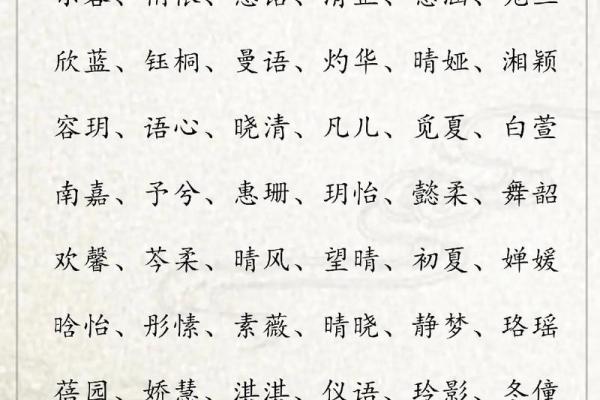 欣蓝、钰桐、曼语、灼华、晴娅、湘颖
容玥、语心、晓清、凡儿、觅夏、白萱
南嘉、予兮、惠珊、玥怡、懿柔、舞韶
欢馨、芩柔、晴风、望晴、初夏、婵媛
晗怡、彤愫、素薇、晴晓、静梦、珞瑶
蓓园、娇慧、淇淇、仪语、玲影、冬僮